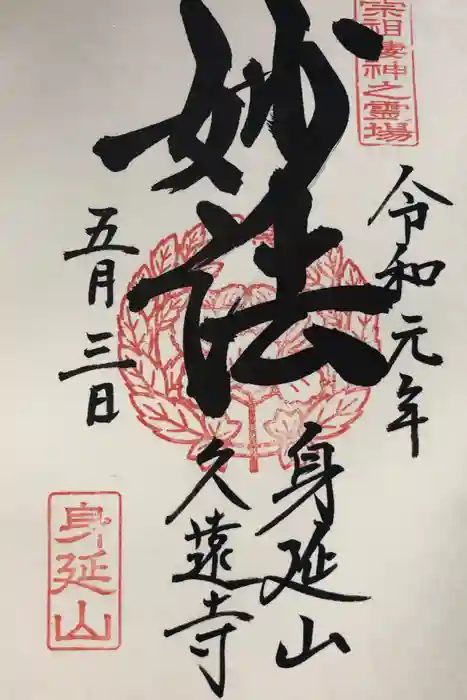 宗祖棲神之霊場
令和元年
妙法
身延山
久遠寺
五月三日
身延山